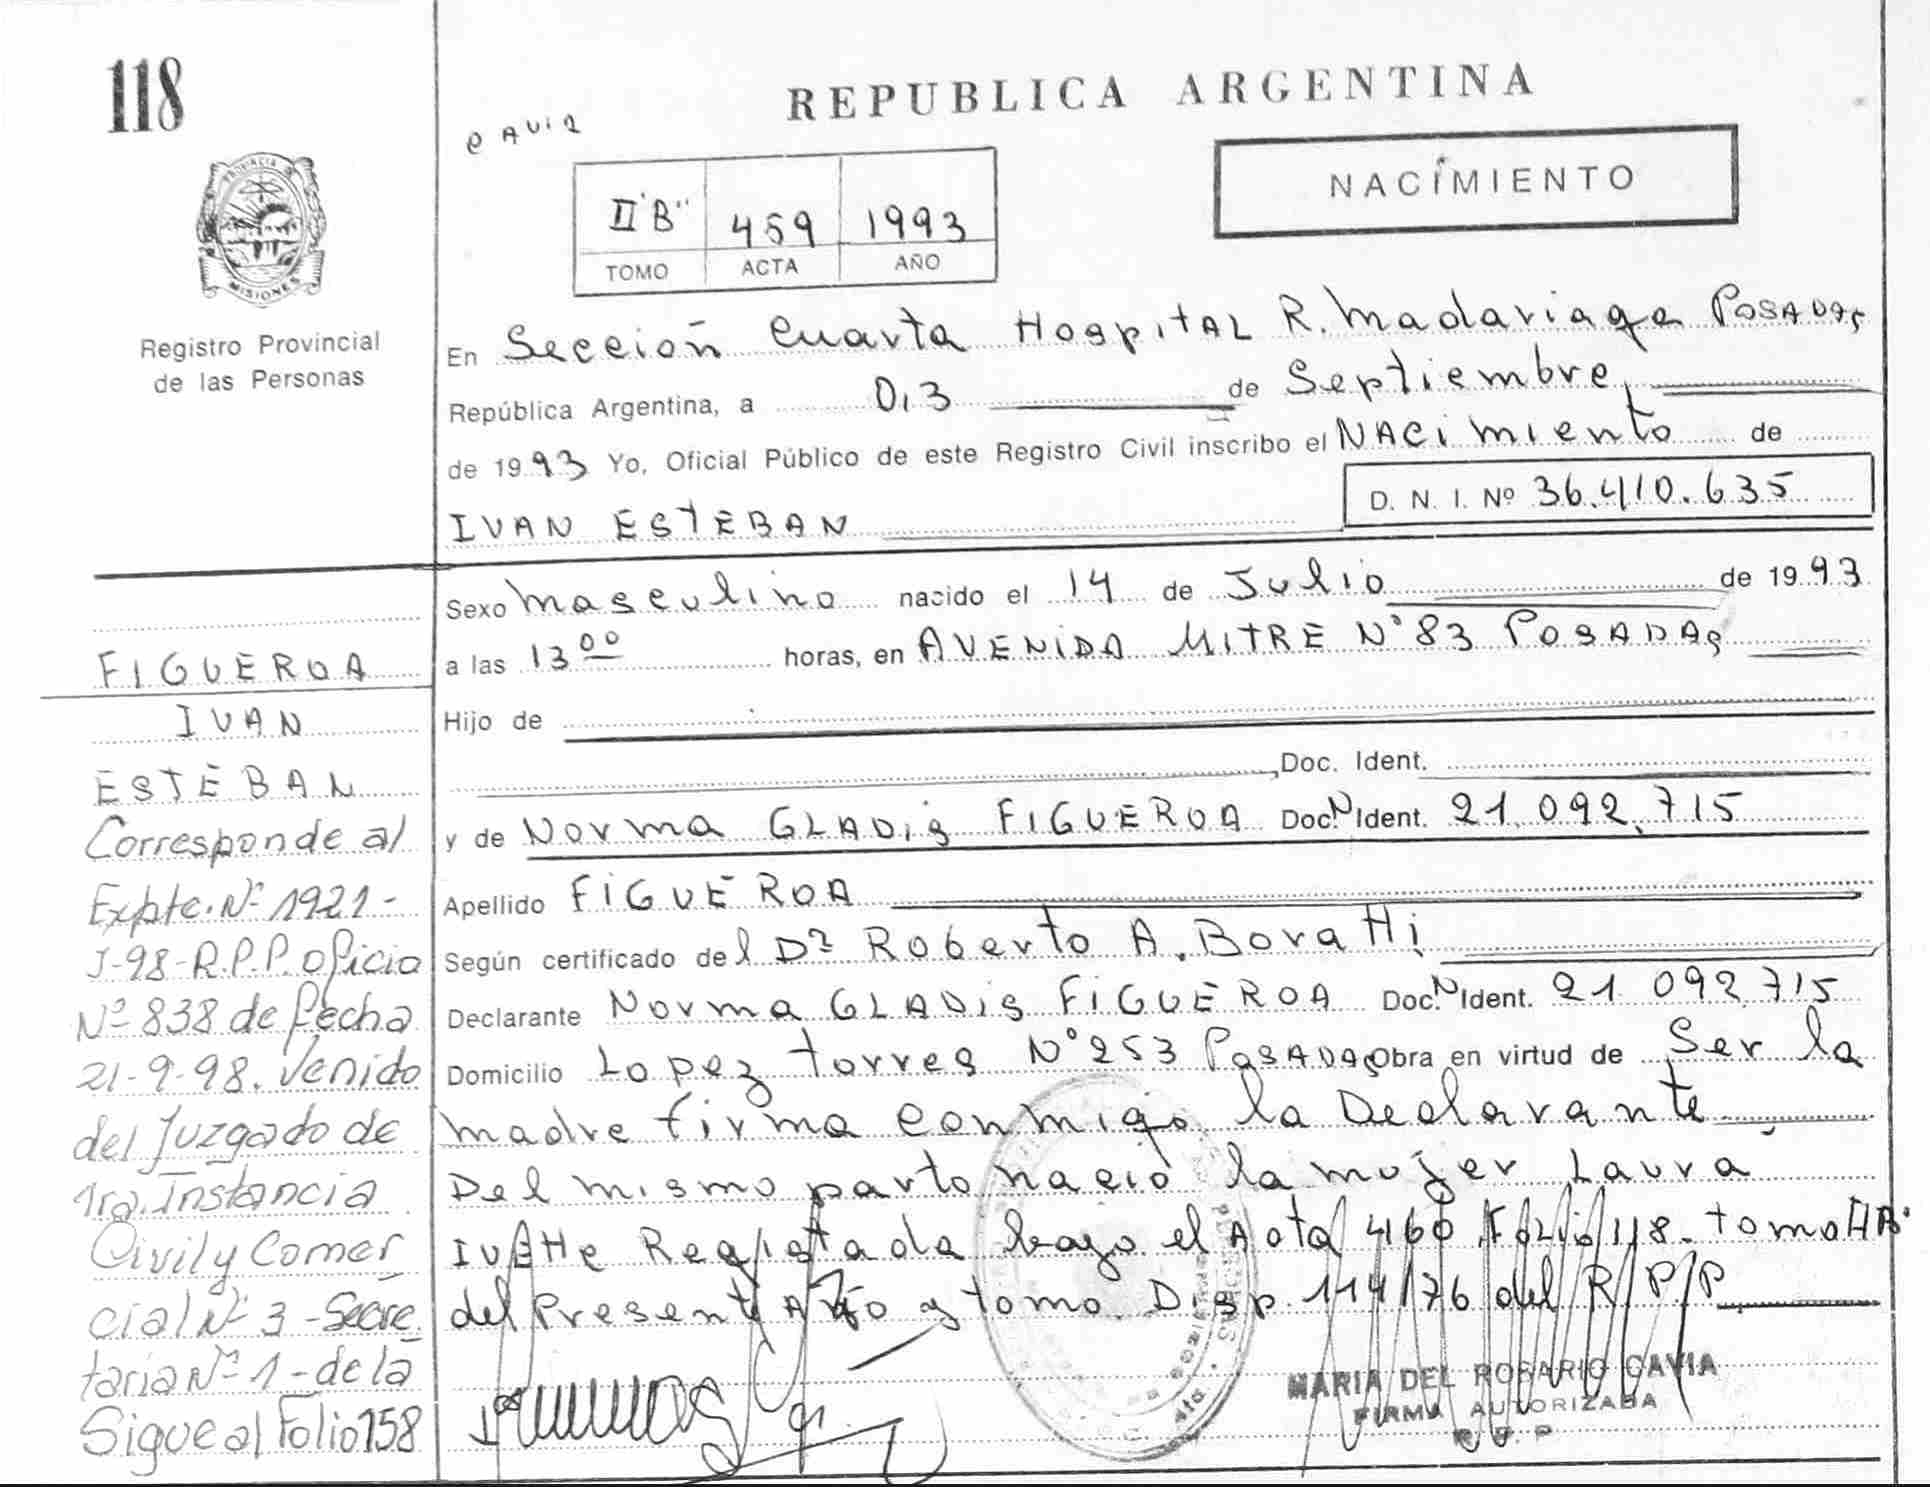 118
REPUBLICA ARGENTINA
NACIMIENTO
II "B" 459 1993
TOMO ACTA AÑO
PROVINCIA DE
MISIONES
Registro Provincial
de las Personas
En Sección Cuarta Hospital R. Madariaga Posadas
República Argentina, a 03 de Septiembre
de 1993 Yo, Oficial Público de este Registro Civil inscribo el Nacimiento de
IVAN ESTEBAN
D. N. I. Nº 36.410.635
Sexo masculino nacido el 14 de Julio de 1993
a las 13 00 horas, en AVENIDA MITRE Nº 83 POSADAS
Hijo de
Doc. Ident.
y de Norma GLADiS FIGUEROA Doc. N Ident. 21.092.715
Apellido FIGUEROA
Según certificado del Dr Roberto A. Boratti
Declarante Norma GLADiS FIGUEROA Doc. N Ident. 21 092 715
Domicilio Lopez torres Nº 253 POSADAS Obra en virtud de Ser la
madre firma conmigo la Declarante
Del mismo parto nacio la mujer Laura
IVEtte Registada bajo el Acta 460 Folio 118 tomo II "B"
del Presente Año y tomo. Disp. 114/76 del R/P/P
MARIA DEL ROSARIO CAVIA
FIRMA AUTORIZADA
R. P. P
FIGUEROA
IVAN
ESTEBAN
Corresponde al
Expte. Nº 1921-
J-98-R.P.P. oficio
Nº 838 de fecha
21-9-98. Venido
del Juzgado de
1ra. Instancia
Civil y Comer
cial Nº 3 - Secre
taria Nº 1 - de la
Sigue al Folio 158